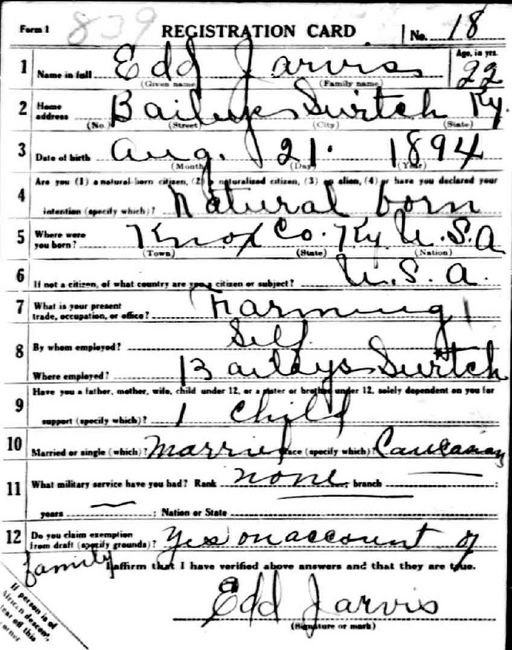 Form 1 839 REGISTRATION CARD No. 18
1 Name in full Edd Jarvis Age, in yrs. 22
(Given name) (Family name)
2 Home address Baileys Swrtch Ky.
(No.) (Street) (City) (State)
3 Date of birth Aug. 21. 1894
(Month) (Day) (Year)
Are you (1) a natural-born citizen, (2) a naturalized citizen, (3) an alien, (4) or have you declared your
4 intention (specify which)? Natural born
5 Where were you born? Knox Co. Ky U.S.A
(Town) (State) (Nation)
6 If not a citizen, of what country are you a citizen or subject? U.S.A.
7 What is your present trade, occupation, or office? Farming
8 By whom employed? Self
Where employed? Baileys Swrtch
Have you a father, mother, wife, child under 12, or a sister or brother under 12, solely dependent on you for
9 support (specify which)? 1 child
10 Married or single (which)? Married Race (specify which)? Caucasian
11 What military service have you had? Rank none; branch
years — ; Nation or State
12 Do you claim exemption from draft (specify grounds)? Yes on account of
family
I affirm that I have verified above answers and that they are true.
Edd Jarvis
(Signature or mark)
If person is of
African descent,
tear off this
corner